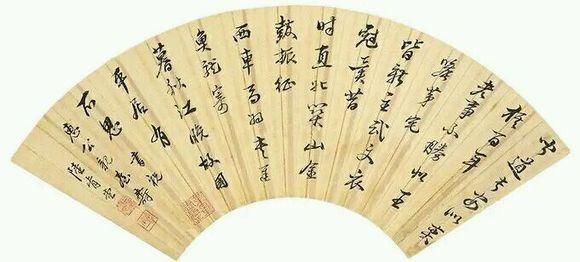 聞道長安似奕
棋百年
世事不勝悲王
侯第宅
皆新主武文衣
冠異昔
時直北關山金
鼓振征
西車馬羽書馳
魚龍寂
寞秋江冷故國
平居有
所思 書祝
惠公親翁壽
陸肯堂